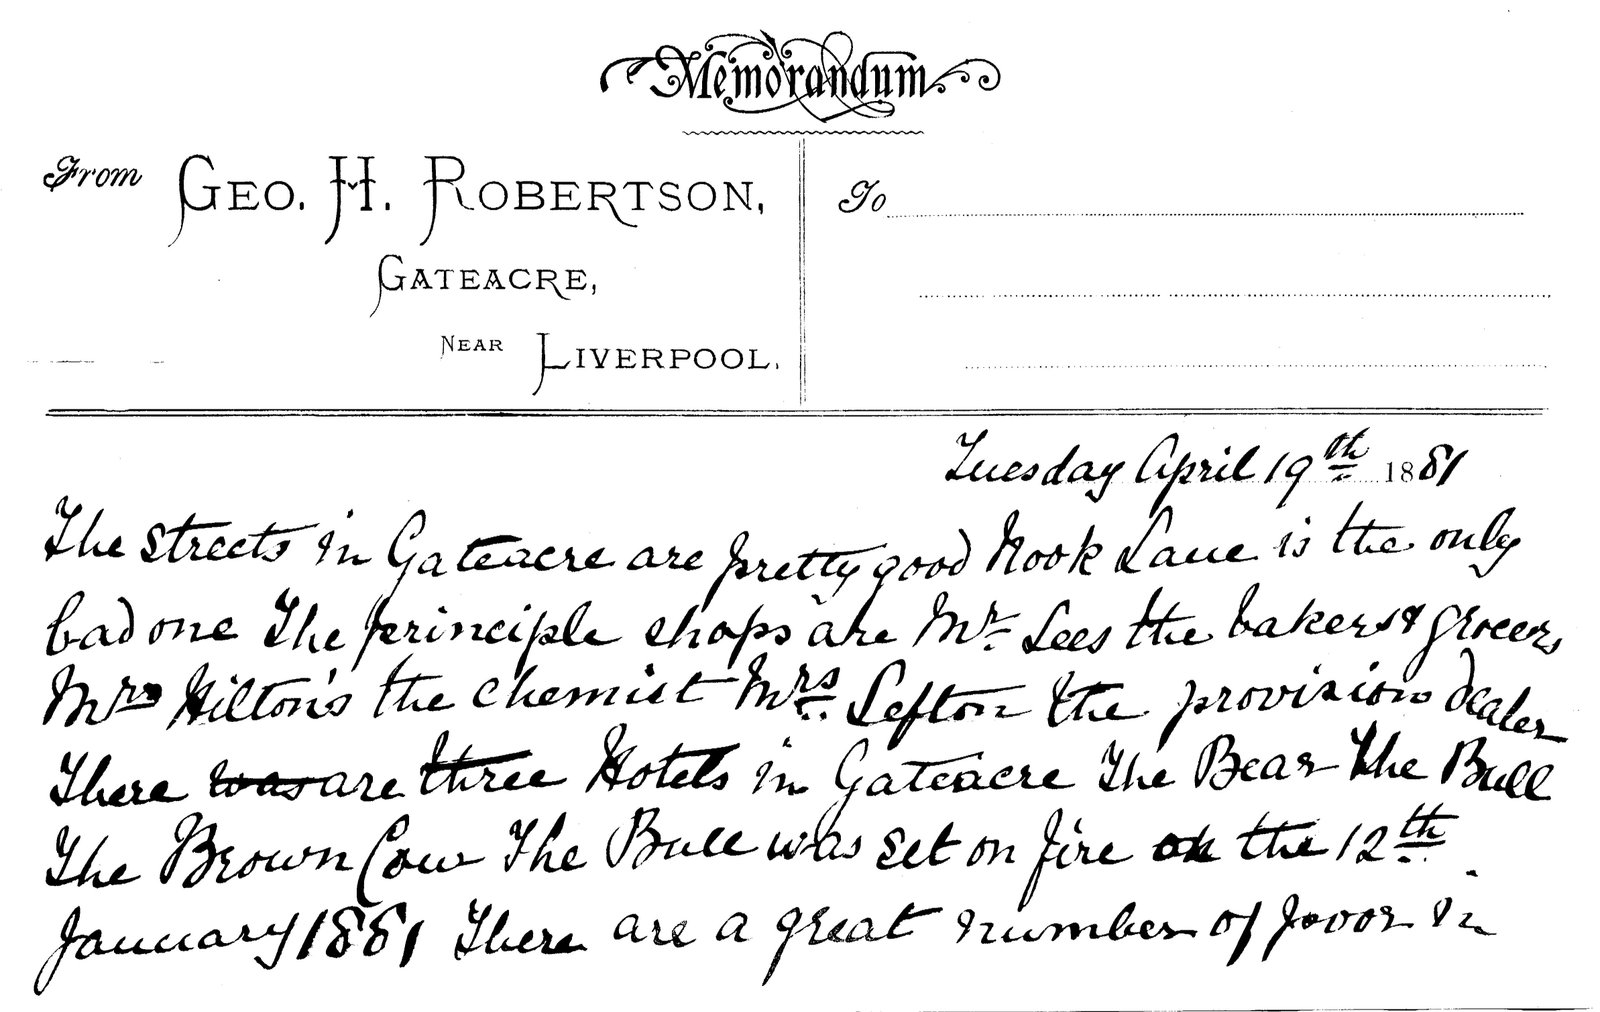 Memorandum
From GEO. H. ROBERTSON,
To
GATEACRE,
NEAR LIVERPOOL.
Tuesday April 19th 1881
The streets in Gateacre are pretty good Nook Lane is the only
bad one The principle shops are Mr. Lees the bakers & grocers
Mrs Hilton's the chemist Mrs Lefton the provision dealer
There was are three Hotels in Gateacre The Bear The Bull
The Brown Cow The Bull was set on fire on the 12th
January 1881 There are a great number of poor in